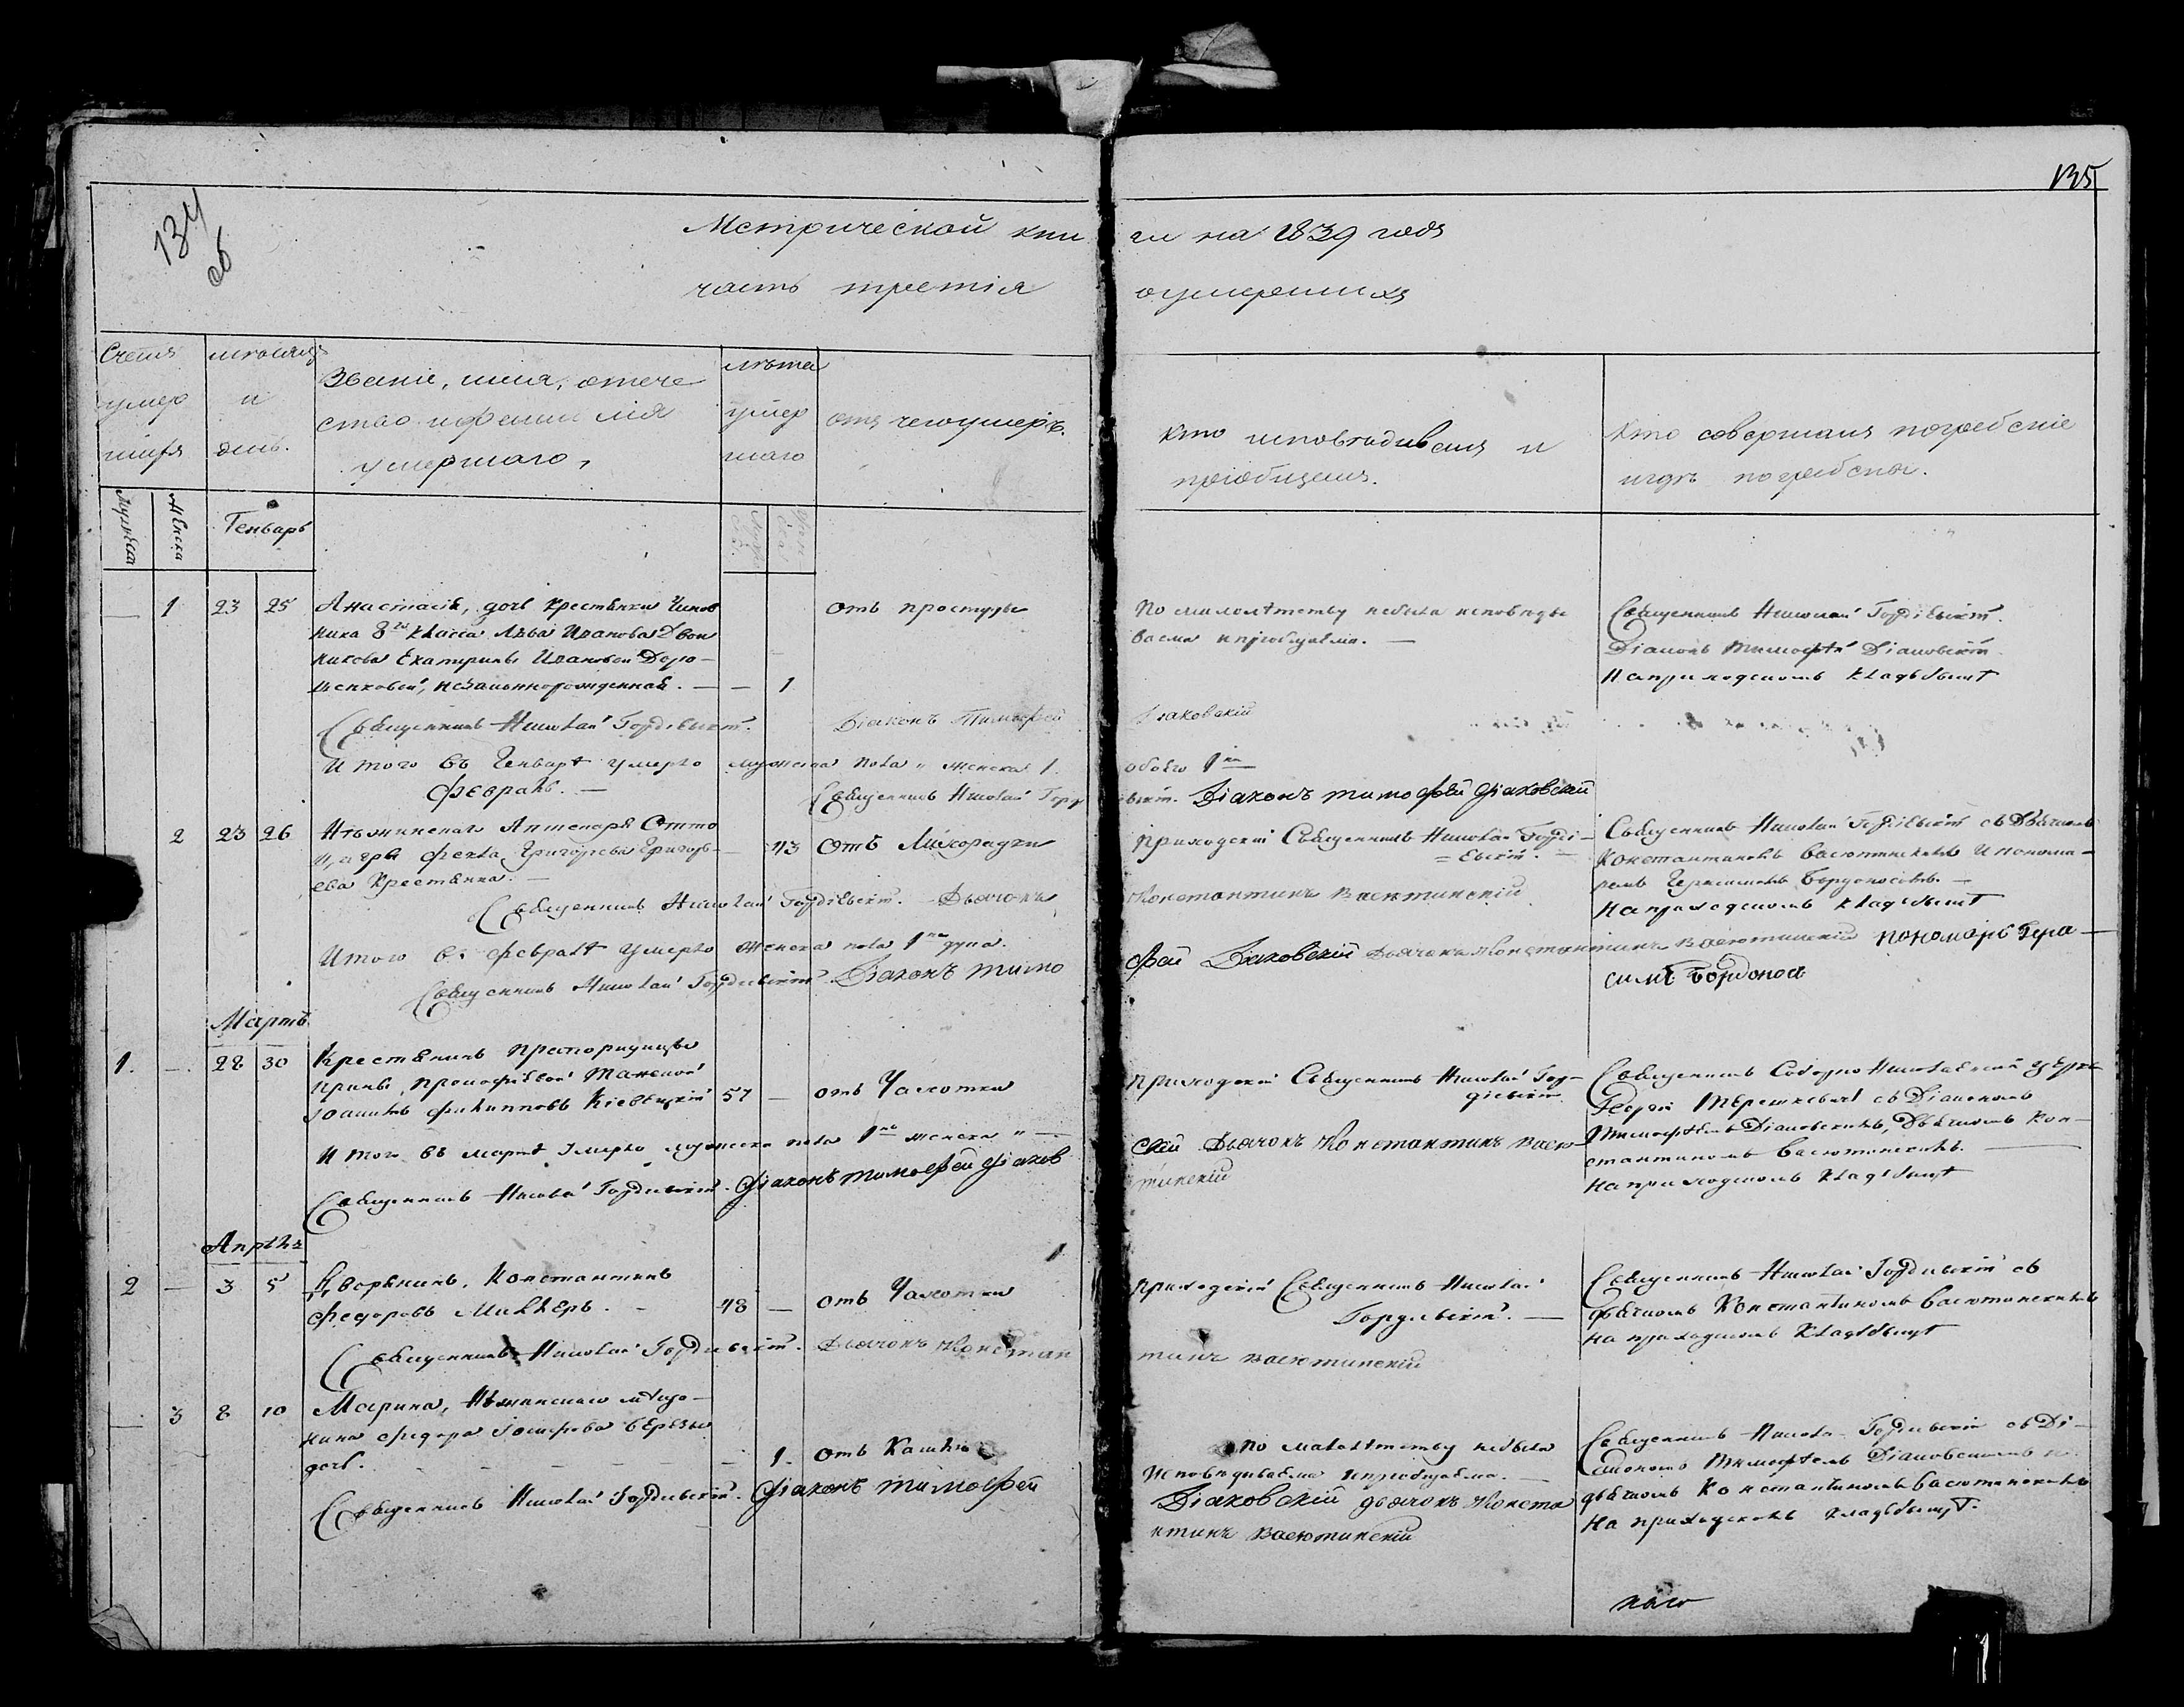 134
об
135
Метрической кни ги на 1839 годъ
часть третія оумершихъ
Счетъ
умер
шихъ
месяцъ
и
день.
Званіе, имя, отече
ство и фамилія
умершаго,
лѣта
умер
шаго
отъ чего умеръ.
кто исповѣдивалъ и
пріобщалъ.
кто совершалъ погребеніе
и гдѣ погребены.
Мужеска
Женска
Генварь
1 23 25
Анастасія, дочь крестьянки Чинов
ника 8го класса Льва Иванова Двои
Екатерины Ивановой Доро-
незаконнорожденная. — — 1
отъ простуды
По малолѣтству небыла исповѣды
ваема и пріобщаема. —
Священникъ Николай Гордіевскій.
Діаконъ Тимофѣй Діаковскій
На приходскомъ кладбищѣ
Священникъ Николай Гордіевскій. Діаконъ Тимофей Діаковскій
Итого въ Генварѣ умерло мужеска пола „ женска 1. обоего 1на
Февраль. —
Священникъ Николай Горді евскій. Діаконъ Тимофей Діаковскій
2 23 26
Нѣжинскаго Аптекаря Отто
Фекла Григорьева Григорь-
ева крестьянка. —
43 Отъ Лихорадки
Приходскій Священникъ Николай Горді-
=евскій. —
Священникъ Николай Гордіевскій съ Дьячкомъ
Константиномъ Васютинскимъ и понома-
ремъ Герасимомъ Бордоносомъ. —
На приходскомъ кладбищѣ
Священникъ Николай Гордіевскій. Дьячокъ Константинъ Васютинскій
Итого въ Февралѣ умерло женска пола 1на душа.
Священникъ Николай Гордіевскій Діаконъ Тимо фей Діаковскій Дьячокъ Константинъ Васютинскій пономарь Гера—
симъ Бордонос
Мартъ
1. — 28 30
Крестьянинъ Прапорщицы
Ирины Прокофіевой
Іоаннъ Филипповъ Кіевецкій 57 —
отъ Чахотки
Приходскій Священникъ Николай Гор-
діевскій
Священникъ Соборно Николаевской церкви
Георгій Терешкевичъ съ Діакономъ
Тимофѣемъ Діаковскимъ, Дьячкомъ Кон-
стантиномъ Васютинскимъ. —
На приходскомъ кладбищѣ
Итого въ мартѣ умерло мужеска пола 1нъ женска „ —
Священникъ Николай Гордіевскій. Діаконъ Тимофей Діаков скій Дьячокъ Константинъ Васю
тинскій
Апрѣль
2 — 3 5
Дворянинъ, Константинъ
Федоровъ Миллеръ. — 48 —
отъ Чахотки
Приходскій Священникъ Николай
Гордіевскій. —
Священникъ Николай Гордіевскій съ
дьячкомъ Константиномъ Васютинскимъ
на приходскомъ кладбищѣ
Священникъ Николай Гордіевскій. Дьячокъ Констан тинъ Васютинскій
— 3 8 10
Марина, Нѣжинскаго мѣща-
нина Федора Іосифова Березы
дочь. — 1. отъ Кашлю
По малолѣтству небыла
исповѣдываема и пріобщаема. —
Священникъ Николай Гордіевскій съ Ді-
акономъ Тимофѣемъ Діаковскимъ и
дьячкомъ Константиномъ Васютинскимъ
На приходскомъ кладбищѣ.
Священникъ Николай Гордіевскій. Діаконъ Тимофей
Діаковскій дьячокъ Конста
нтинъ Васютинскій